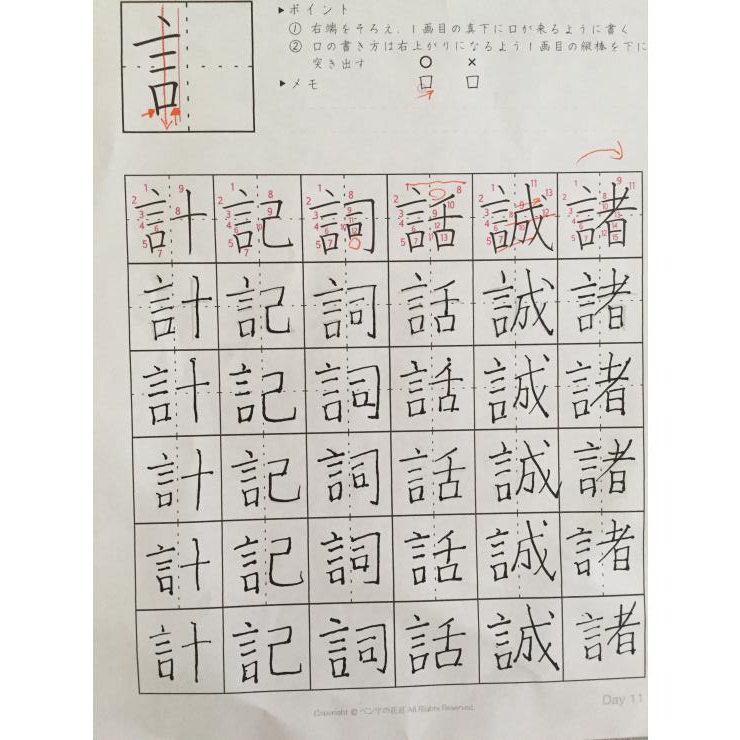 言
▶ポイント
① 右端をそろえ、1画目の真下に口が来るように書く
② 口の書き方は右上がりになるよう1画目の縦棒を下に
突き出す ○ ×
▶メモ 口 口
計 記 詞 話 誠 諸
計 記 詞 話 誠 諸
計 記 詞 話 誠 諸
計 記 詞 話 誠 諸
計 記 詞 話 誠 諸
計 記 詞 話 誠 諸
Day 11
Copyright © ペン字の花道 All Rights Reserved.